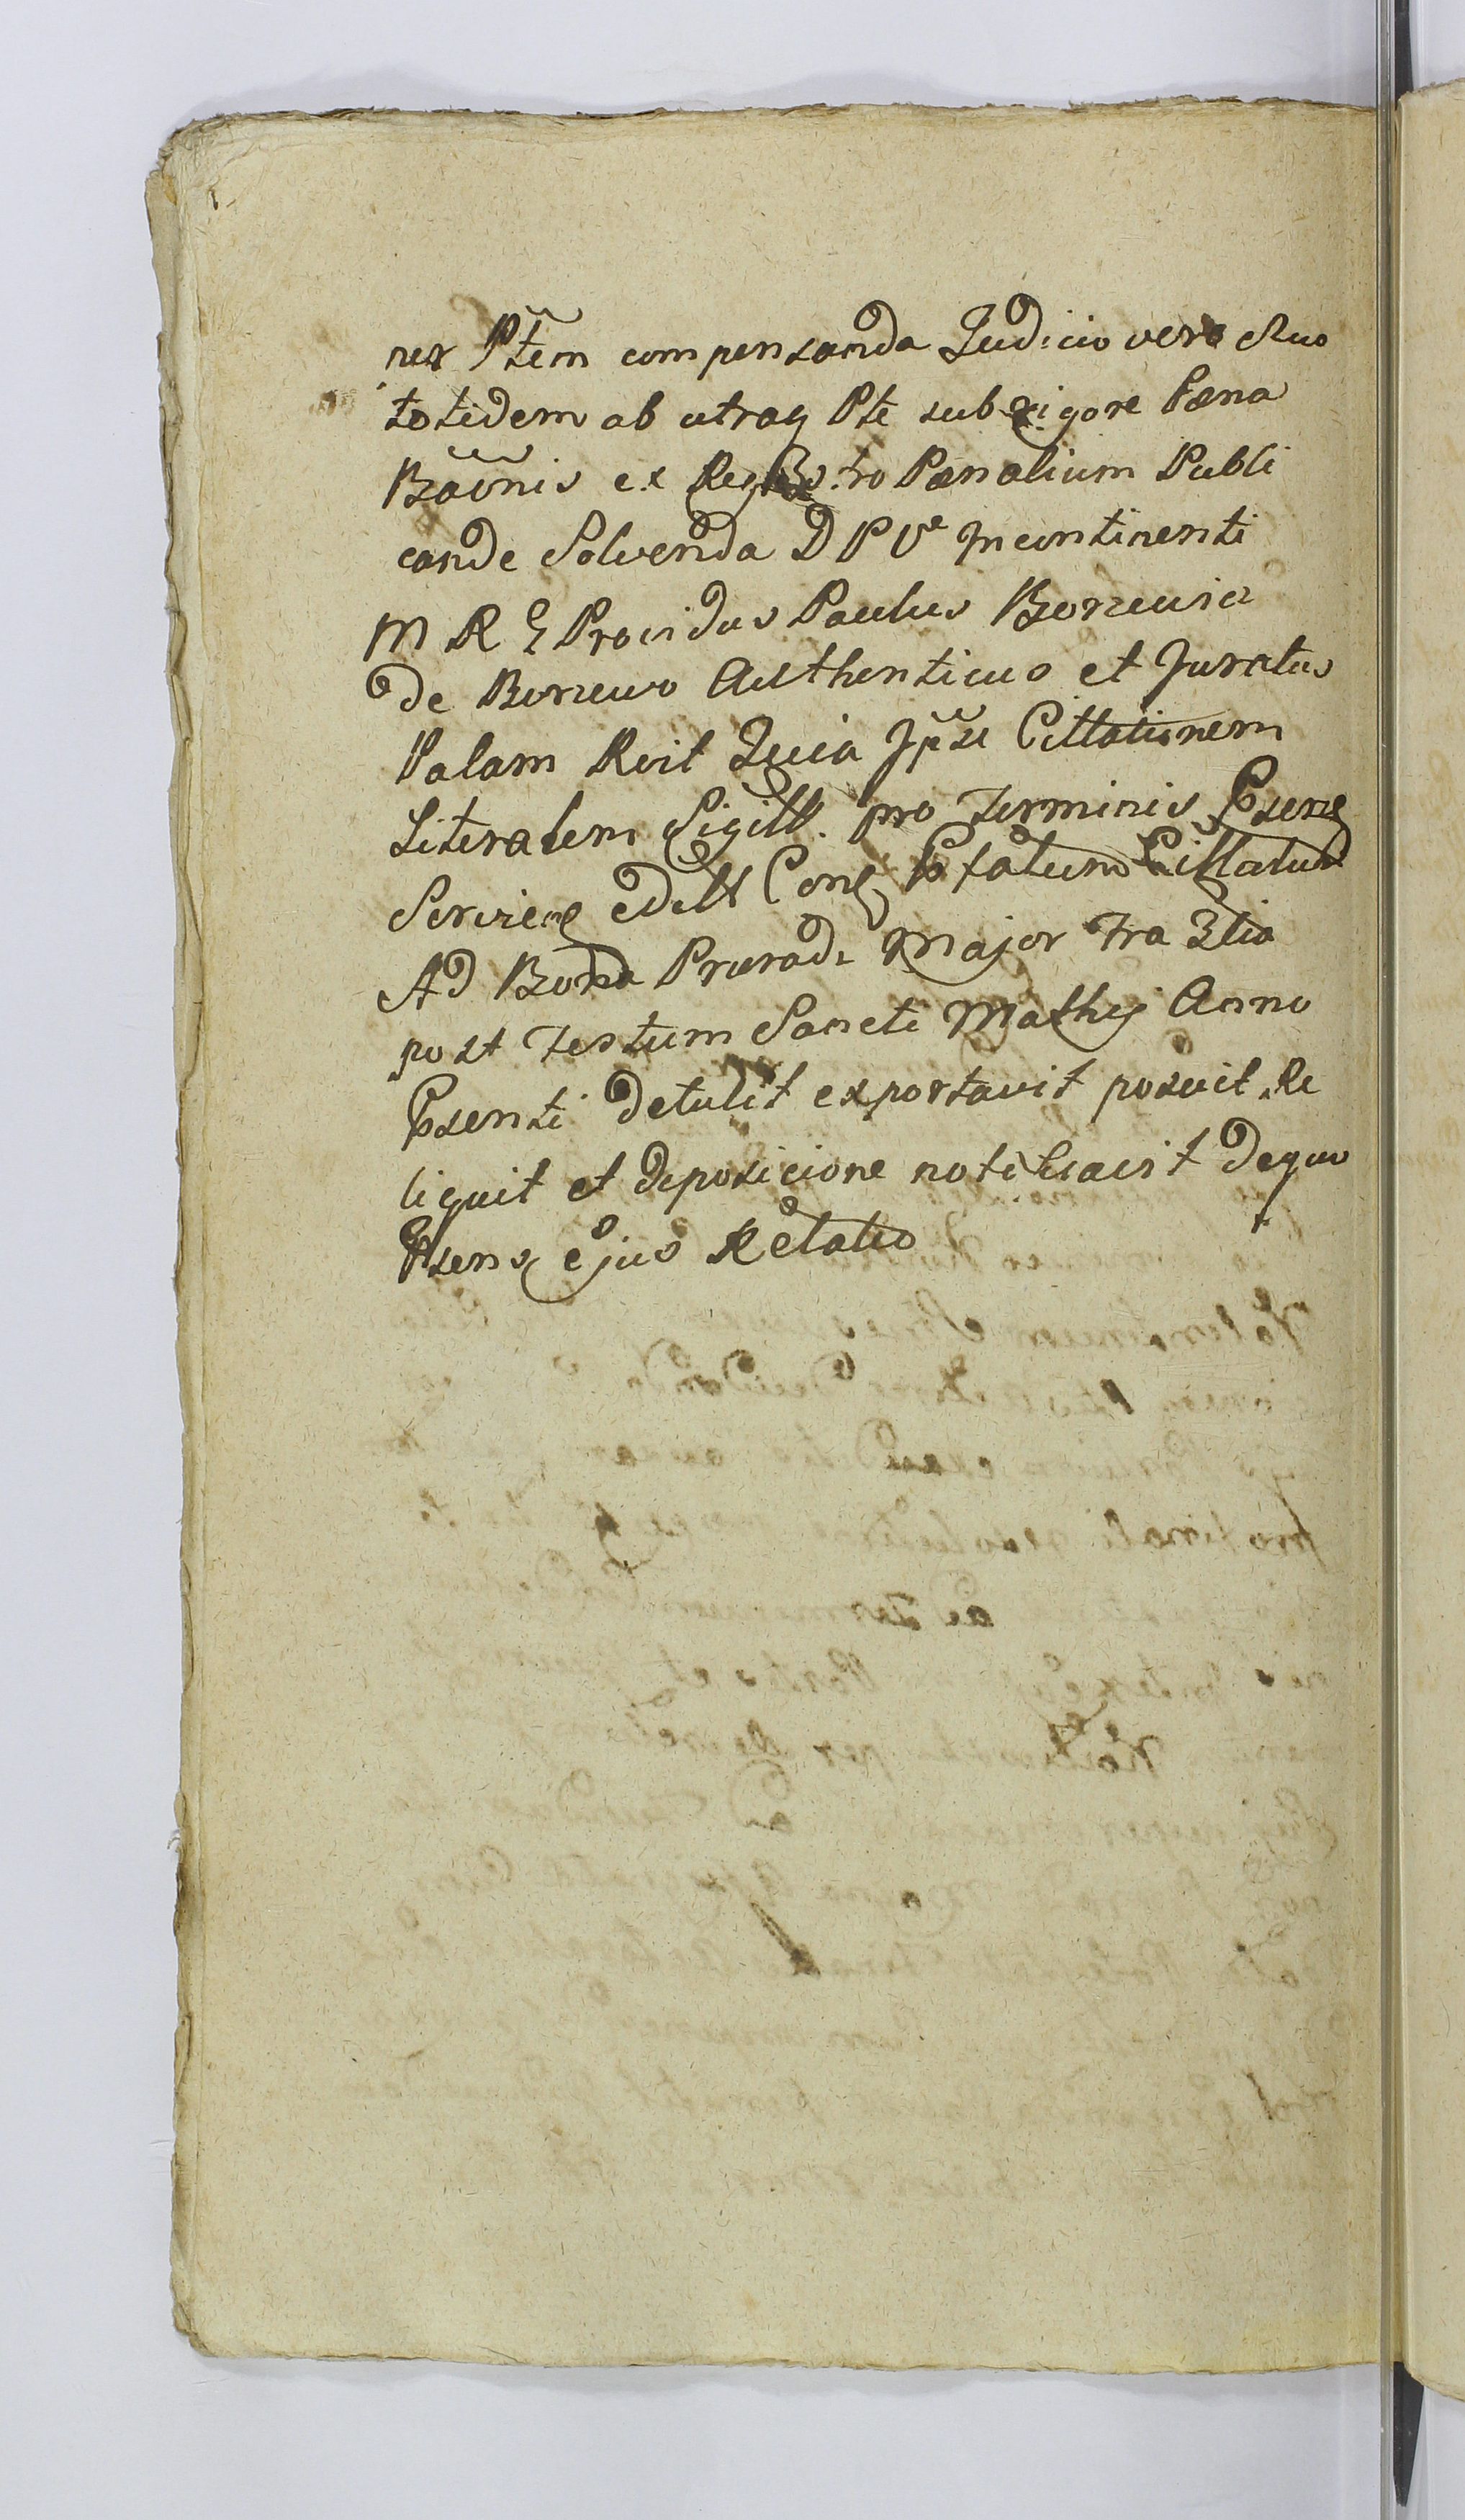 ner Ptem compensanda Judicio vero Suo
totidem ab utraq Pte sub rigore Pæna
Baonis ex Regestro Pænalium Publi
cande Solvenda D P Ve Incontinenti
M R E Providus Paulus Borzewic
de Borzewo Authenticus et Juratus
Palam Rcit Quia Ipse Cittationem
Literalem Sigill. pro Terminis Psenz
Servien Edilt Conz Pfatum Cittatum
Ad Bona Major Fra 3tia
post Festum Sancti Mathej Anno
Psenti Detulit exportavit posuit Re
liquit et Deposicione notificavit Dequo
Psens Ejus Relatio